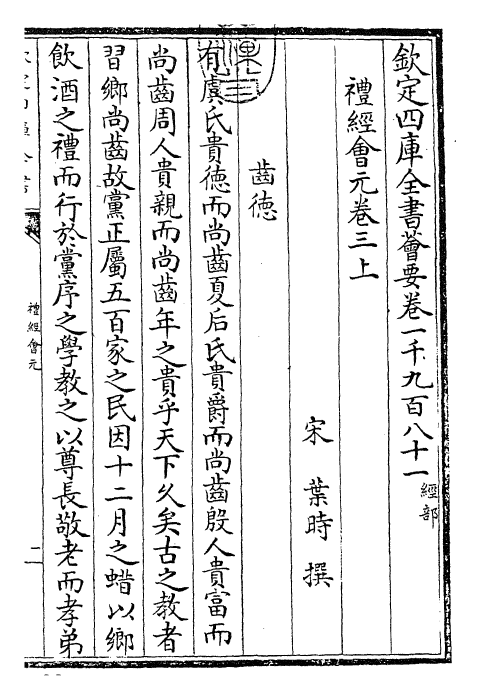 欽定四庫全書薈要卷一千九百八十一 經部
禮經會元卷三上
宋 葉時 撰
齒徳
有虞氏貴徳而尚齒夏后氏貴爵而尚齒殷人貴富而
尚齒周人貴親而尚齒年之貴乎天下久矣古之教者
習鄉尚齒故黨正屬五百家之民因十二月之蜡以鄉
飲酒之禮而行於黨序之學教之以尊長敬老而孝弟
禮經會元
二